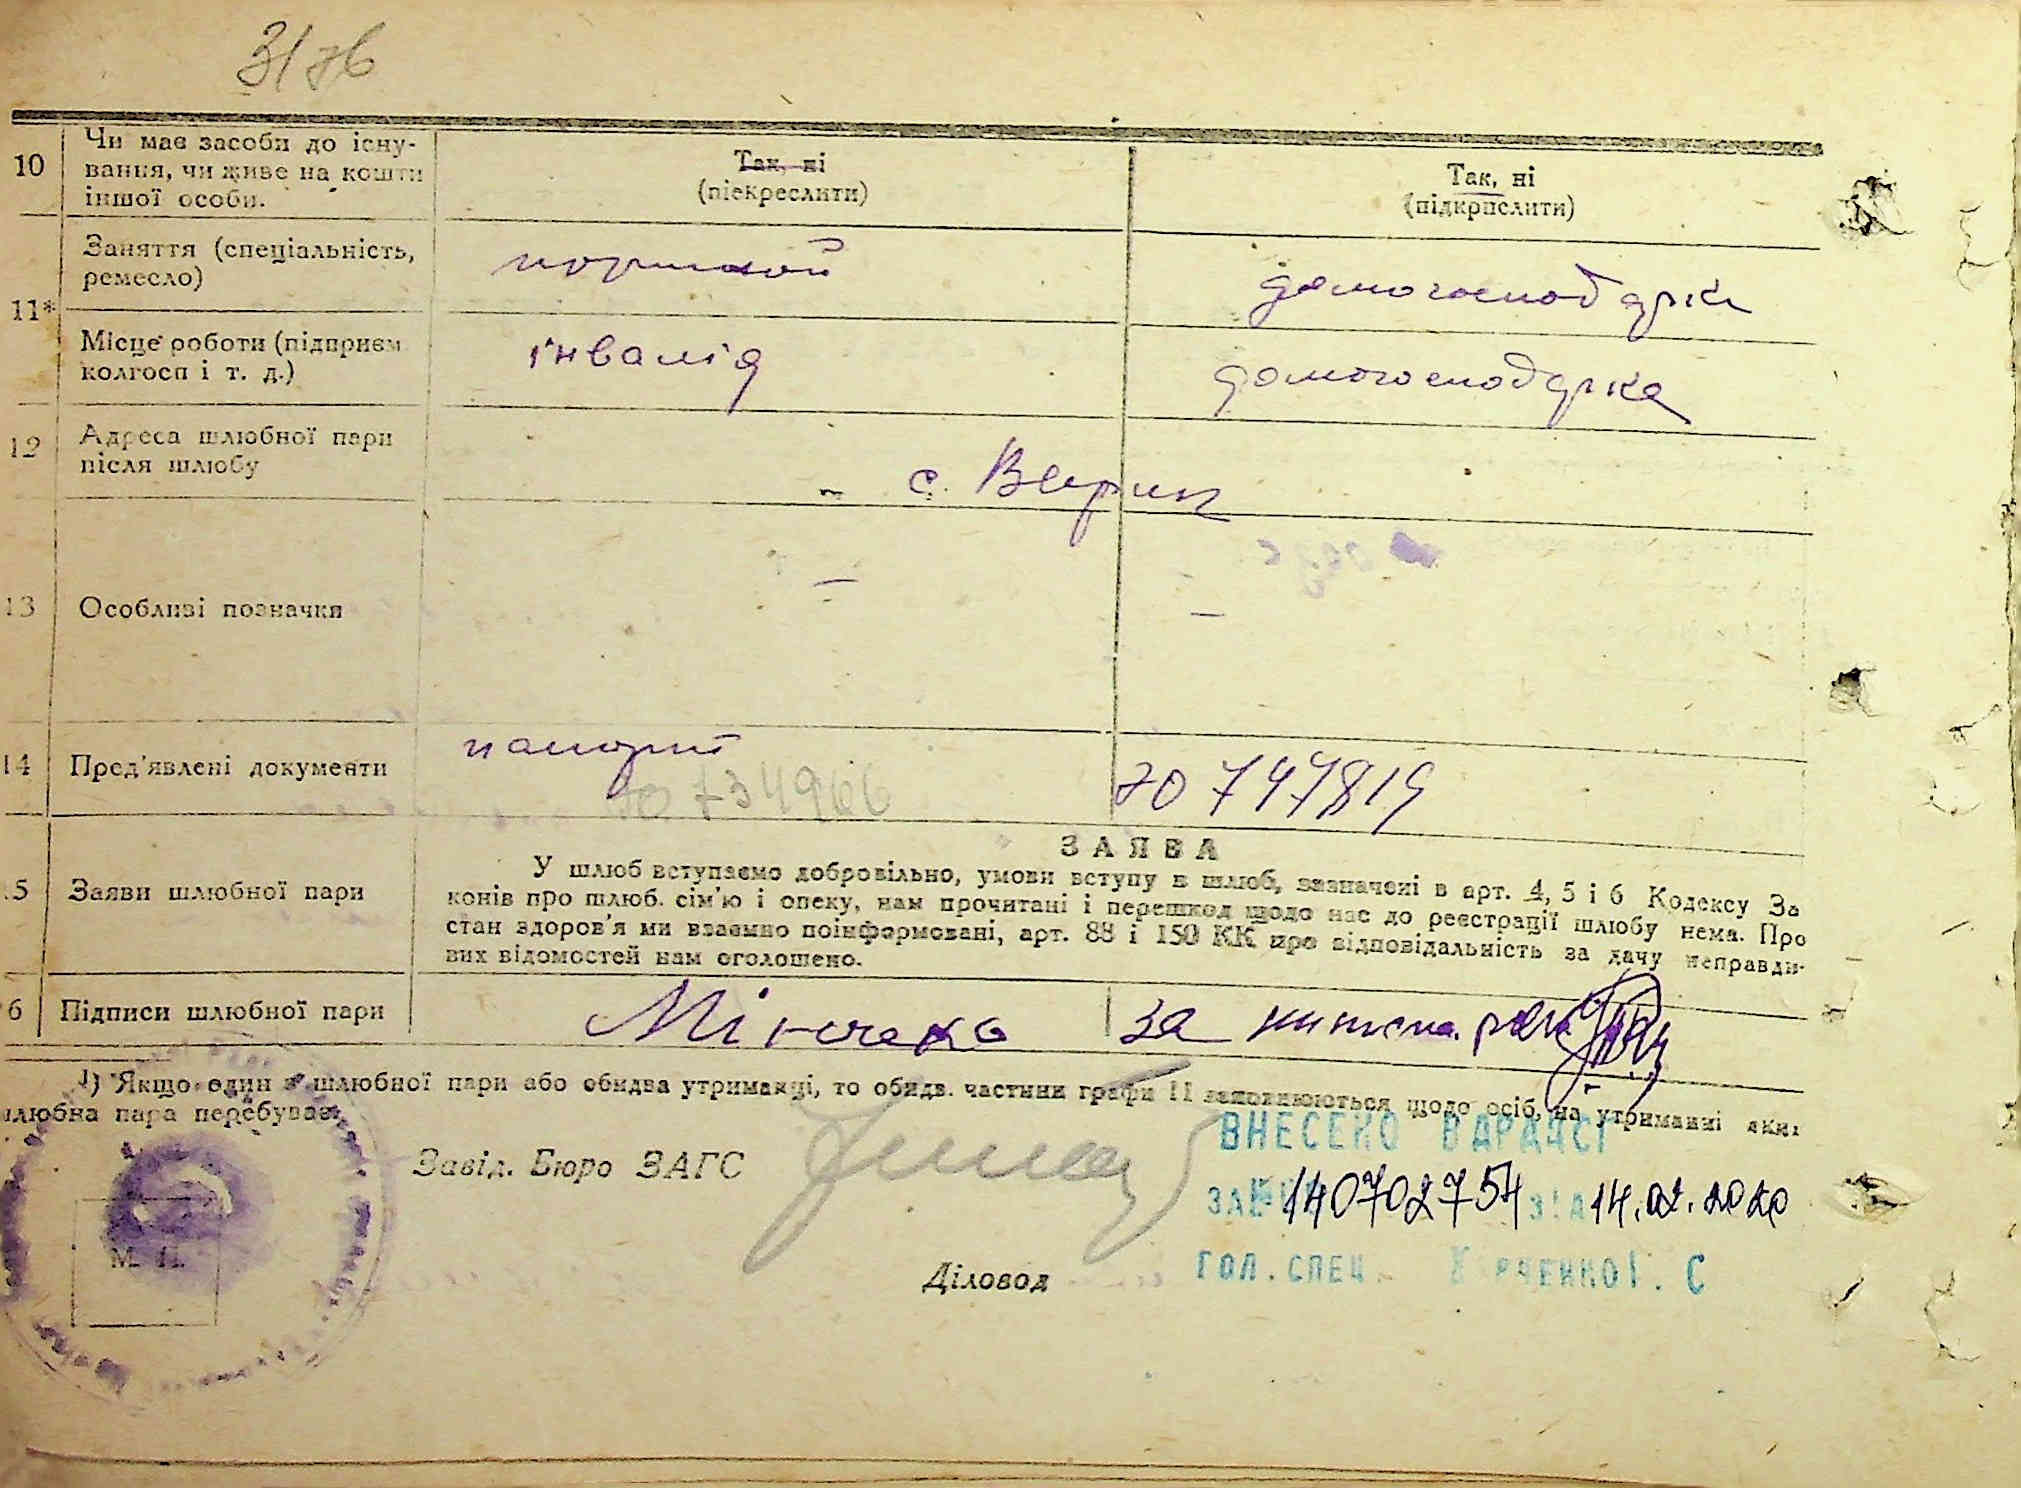 3176
10
Чи має засоби до існу-
вання, чи живе на кошти
іншої особи.
Так, ні
(піекреслити)
Так, ні
(підкрпслити)
11*
Заняття (спеціальність,
ремесло)
портной
домогосподарка
Місце роботи (підприєм
колгосп і т. д.)
інвалід
домогосподарка
12
Адреса шлюбної пари
після шлюбу
с.
13
Особливі позначки
—
—
14
Пред'явлені документи
паспорт
70 734966
70 747819
15
Заяви шлюбної пари
ЗАЯВА
У шлюб вступаємо добровільно, умови вступу в шлюб, зазначені в арт. 4, 5 і 6 Кодексу За
конів про шлюб. сім'ю і опеку, нам прочитані і перешкод щодо нас до реєстрації шлюбу нема. Про
стан здоров'я ми взаємно поінформовані, арт. 88 і 150 КК про відповідальність за дачу неправди-
вих відомостей нам оголошено.
6
Підписи шлюбної пари
за
¹) Якщо один з шлюбної пари або обидва утриманці, то обидв. частини графи 11 заповнюються щодо осіб, на утриманні яких
шлюбна пара перебуває.
Завід. Бюро ЗАГС
М. П.
Діловод
ВНЕСЕНО В ДРАЦСГ
ЗА № 140702754 ВІД 14.02.2020
ГОЛ. СПЕЦ. С